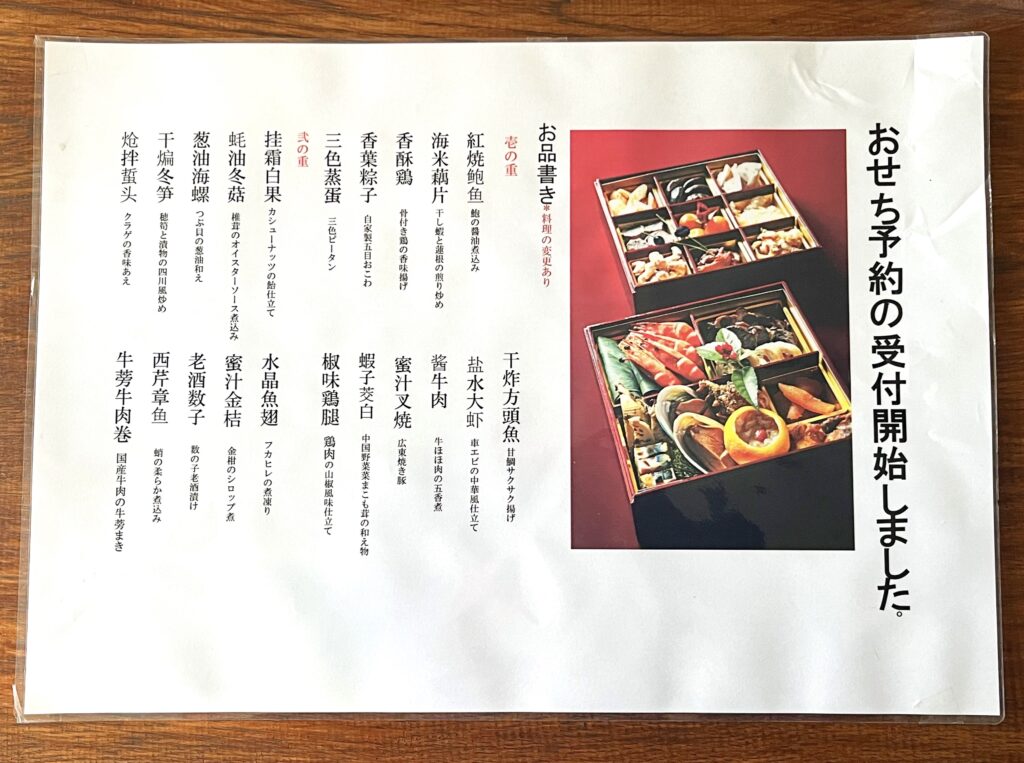 おせち予約の受付開始しました。
お品書き＊料理の変更あり
壱の重
紅焼鲍鱼 鮑の醤油煮込み
海米藕片 干し蝦と蓮根の煎り炒め
香酥鶏 骨付き鶏の香味揚げ
香葉粽子 自家製五目おこわ
三色蒸蛋 三色ピータン
干炸方頭魚 甘鯛サクサク揚げ
盐水大虾 車エビの中華風仕立て
酱牛肉 牛ほほ肉の五香煮
蜜汁叉焼 広東焼き豚
蝦子茭白 中国野菜菜まこも茸の和え物
椒味鶏腿 鶏肉の山椒風味仕立て
弐の重
挂霜白果 カシューナッツの飴仕立て
蚝油冬菇 椎茸のオイスターソース煮込み
葱油海螺 つぶ貝の葱油和え
干煸冬笋 穂筍と漬物の四川風炒め
炝拌蜇头 クラゲの香味あえ
水晶魚翅 フカヒレの煮凍り
蜜汁金桔 金柑のシロップ煮
老酒数子 数の子老酒漬け
西芹章鱼 蛸の柔らか煮込み
牛蒡牛肉巻 国産牛肉の牛蒡まき